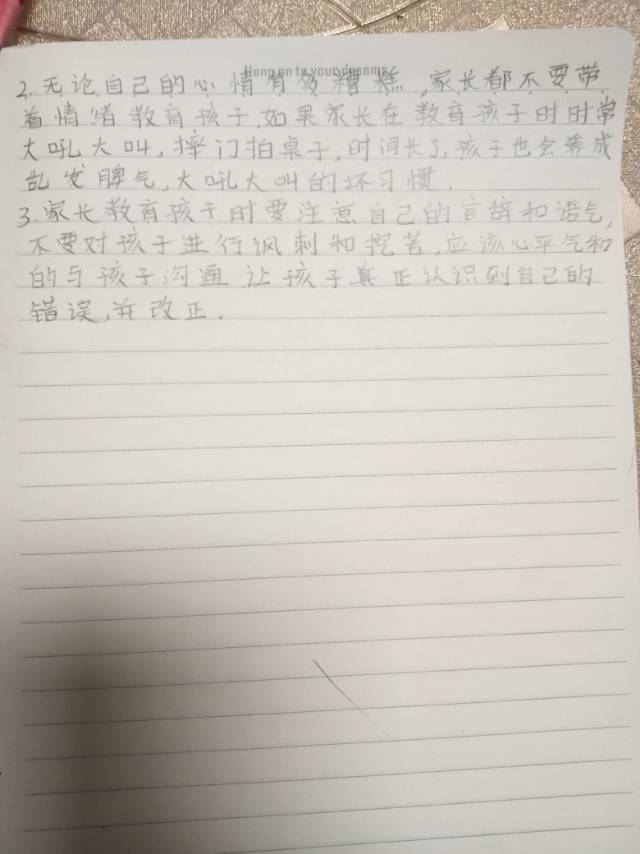 Hang onto your dreams
2.无论自己的心情有多糟糕,家长都不要带
着情绪教育孩子.如果家长在教育孩子时时常
大吼大叫,摔门拍桌子,时间长了,孩子也会养成
乱发脾气,大吼大叫的坏习惯.
3.家长教育孩子时要注意自己的言辞和语气,
不要对孩子进行讽刺和挖苦,应该心平气和
的与孩子沟通.让孩子真正认识到自己的
错误,并改正.